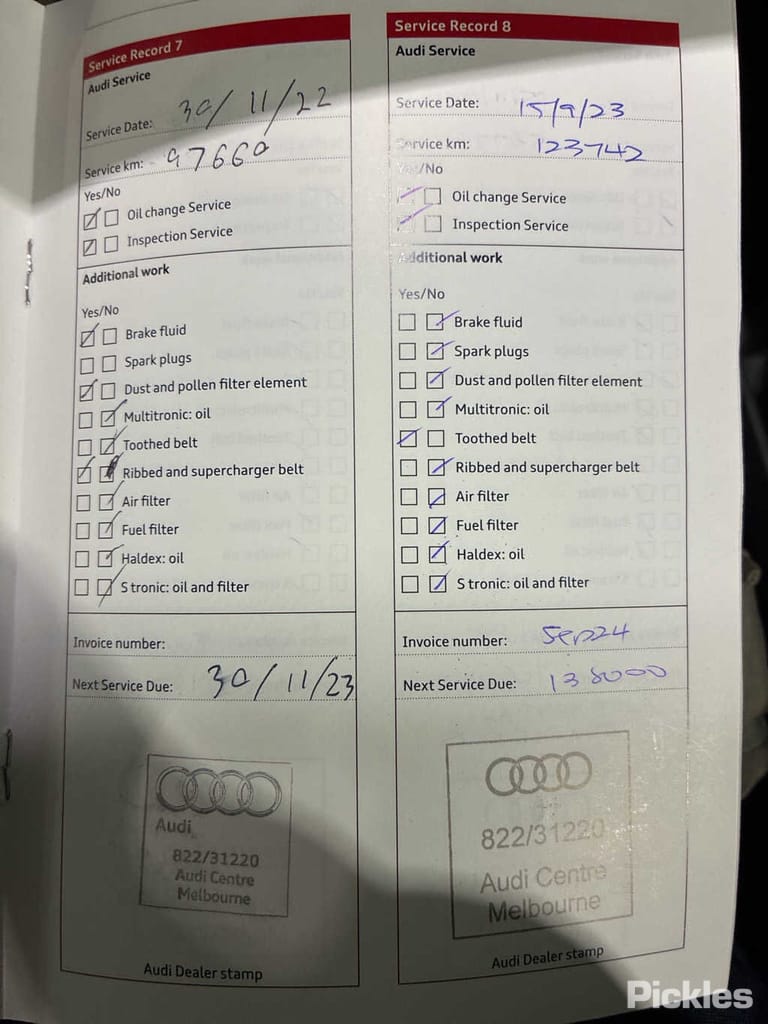 Service Record 7
Audi Service
Service Date: 30/11/22
Service km: 97660
Yes/No
Oil change Service
Inspection Service
Additional work
Yes/No
Brake fluid
Spark plugs
Dust and pollen filter element
Multitronic: oil
Toothed belt
Ribbed and supercharger belt
Air filter
Fuel filter
Haldex: oil
S tronic: oil and filter
Invoice number:
Next Service Due: 30/11/23
Audi
822/31220
Audi Centre
Melbourne
Audi Dealer stamp
Service Record 8
Audi Service
Service Date: 15/9/23
Service km: 123742
Yes/No
Oil change Service
Inspection Service
Additional work
Yes/No
Brake fluid
Spark plugs
Dust and pollen filter element
Multitronic: oil
Toothed belt
Ribbed and supercharger belt
Air filter
Fuel filter
Haldex: oil
S tronic: oil and filter
Invoice number: Sep24
Next Service Due: 138000
822/31220
Audi Centre
Melbourne
Audi Dealer stamp
Pickles